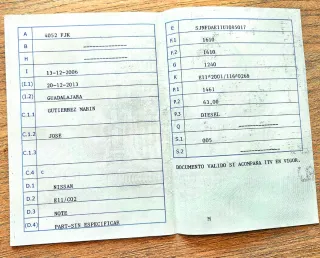 A 4052 FJK
B
H
I 13-12-2006
(I.1) 20-12-2013
(I.2) GUADALAJARA
C.1.1 GUTIERREZ MARIN
C.1.2 JOSE
C.1.3
C.4 C
D.1 NISSAN
D.2 E11/C02
D.3 NOTE
(D.4) PART-SIN ESPECIFICAR
E
F.1 1610
F.2 1610
G 1240
K E11*2001/116*0268
P.1 1461
P.2 63,00
P.3 DIESEL
Q
S.1 005
S.2
DOCUMENTO VALIDO SI ACOMPAÑA ITV EN VIGOR.
M